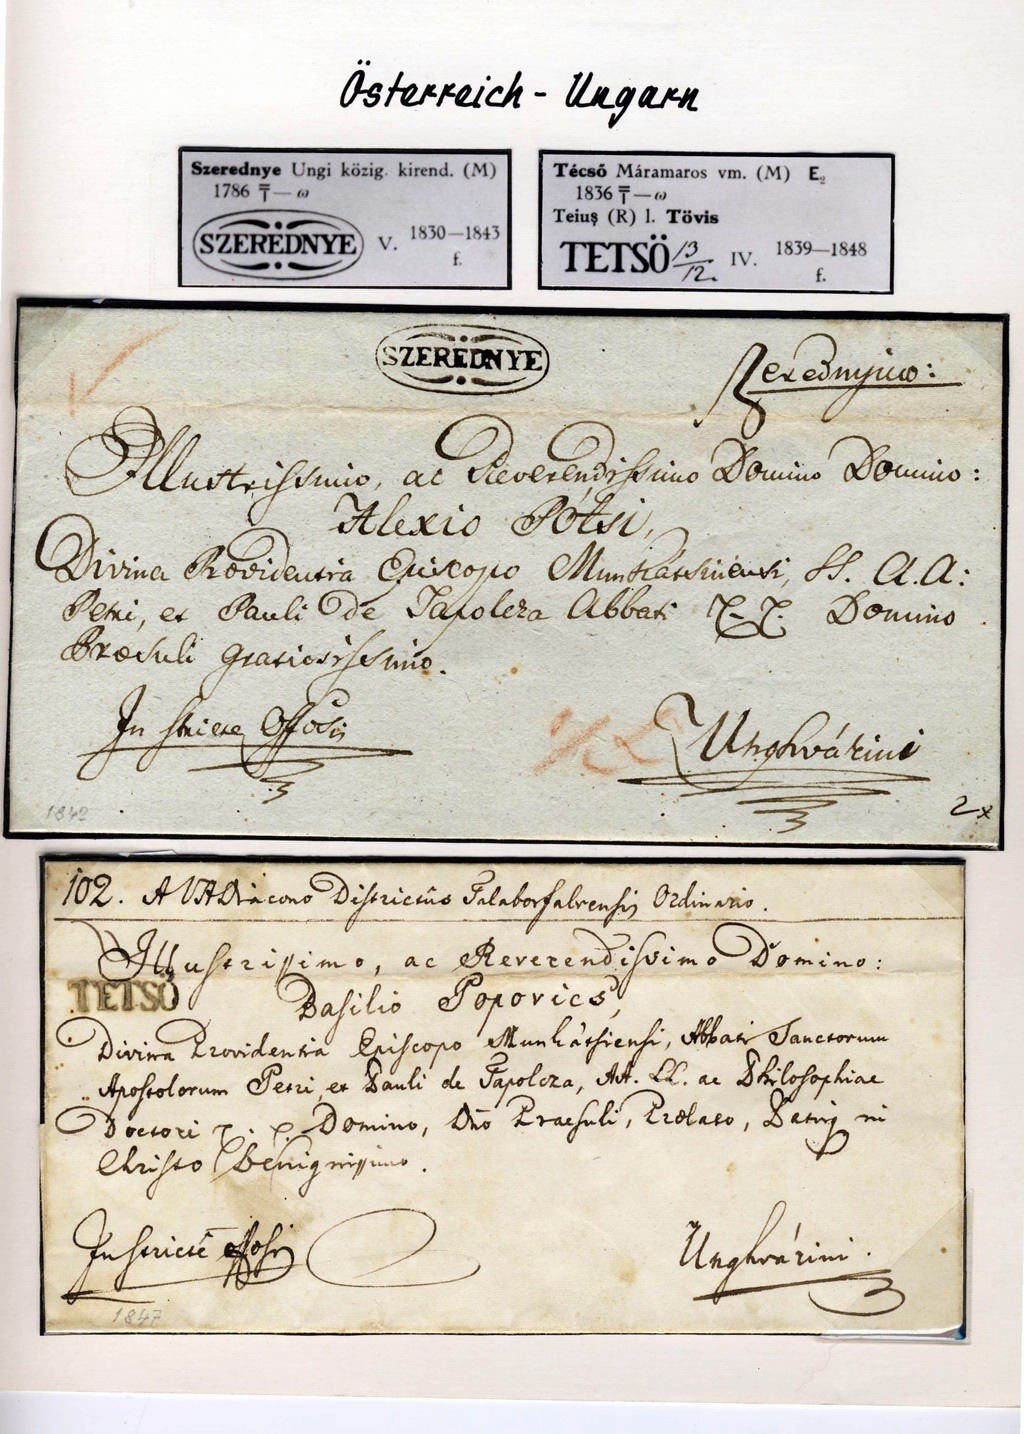 Österreich - Ungarn
Szerednye Ungi közig. kirend. (M)
1786 — ω
SZEREDNYE V. 1830—1843
f.
Técső Máramaros vm. (M) E₂
1836 — ω
Teiuș (R) l. Tövis
TETSÖ 13/12. IV. 1839—1848
f.
SZEREDNYE
Illustrissimo, ac Reverendissimo Domino Domino:
Alexio Pótsi,
Divina Providentia Episcopo Munkátsiensi, SS. A.A:
Petri, et Pauli de Tapolcza Abbati Domino
Præsuli gratiosissimo.
In stricte Offosis
Unghvárini
1842
2x
102. A VADiacono Districtûs Talaborfalvensis Ordinario.
Illustrissimo, ac Reverendissimo Domino:
TETSÖ
Basilio Popovics,
Divina Providentia Episcopo Munkátsiensi, Abbati Sanctorum
Apostolorum Petri, et Pauli de Tapolcza, AA. LL. ac Philosophiae
Doctori p. p. Domino, Dño Praesuli, Prælato, Patri in
Christo Benignissimo.
In stricte
Unghvárini.
1847